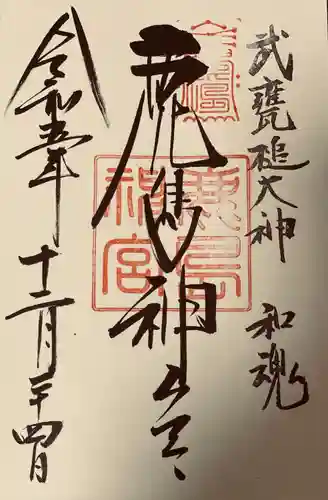 武甕槌大神　和魂
鹿島神宮
鹿島神宮
令和五年　十二月二十四日